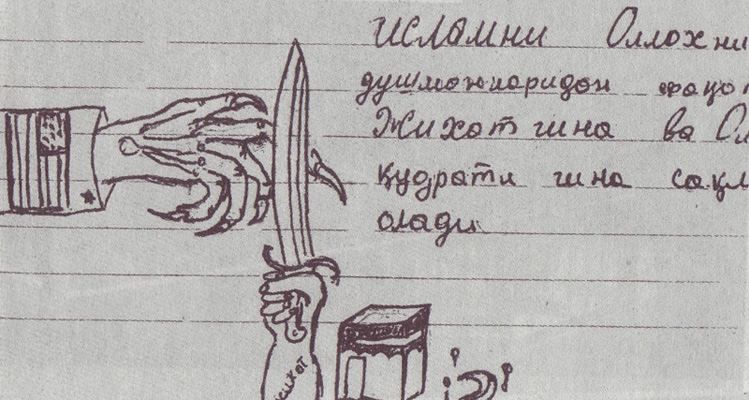 ИСЛАМНИ Оллохни
душманларидан фақат
Жихот гина ва Ол
Қудрати гина сақл
олади
жихот